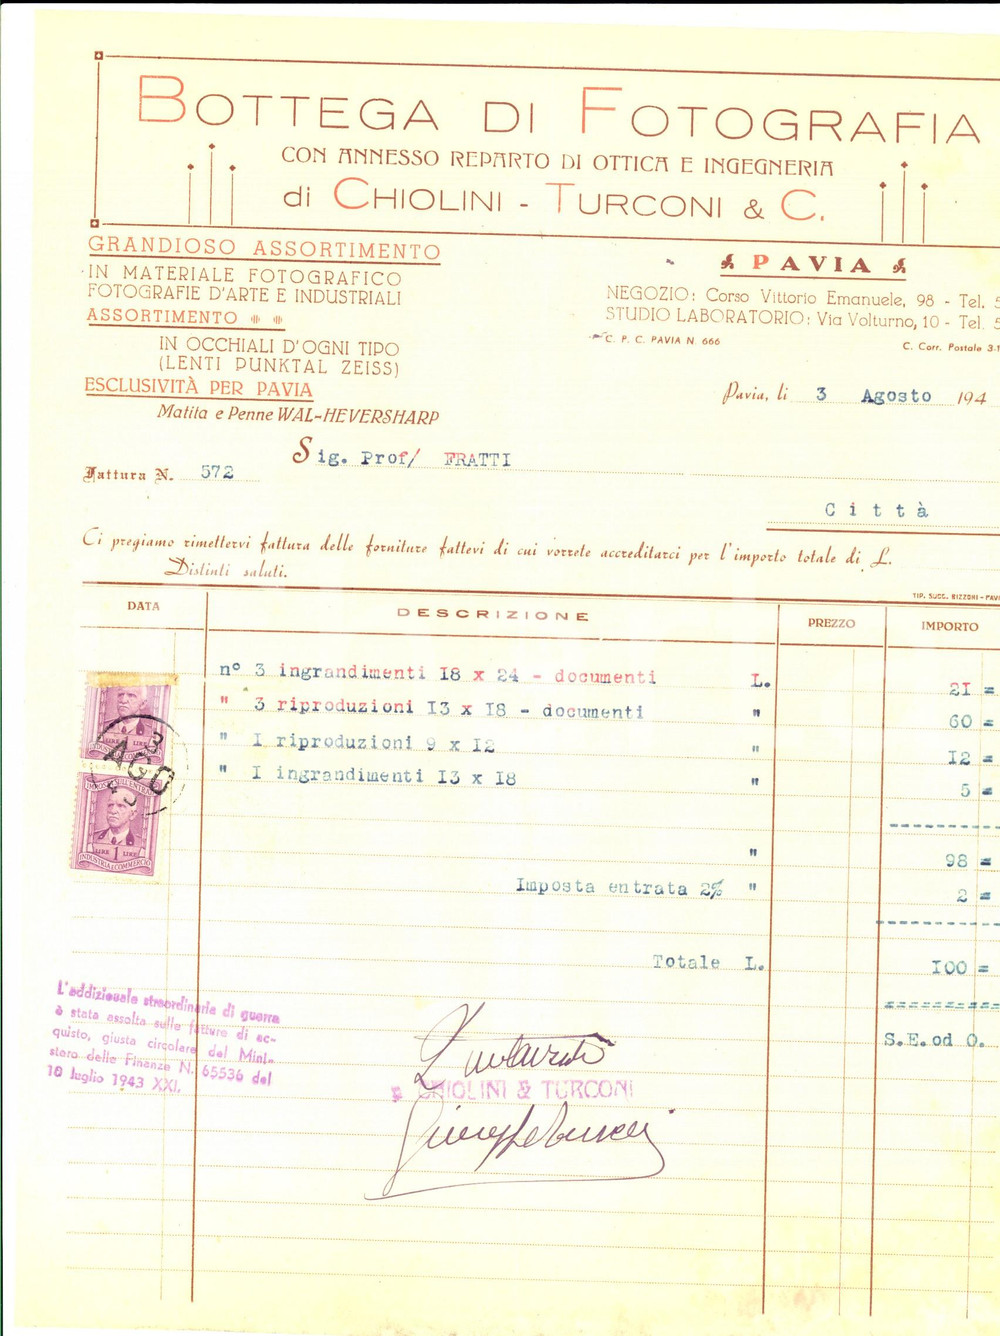 BOTTEGA DI FOTOGRAFIA
CON ANNESSO REPARTO DI OTTICA E INGEGNERIA
di CHIOLINI - TURCONI & C.
GRANDIOSO ASSORTIMENTO
IN MATERIALE FOTOGRAFICO
FOTOGRAFIE D'ARTE E INDUSTRIALI
ASSORTIMENTO
IN OCCHIALI D'OGNI TIPO
(LENTI PUNKTAL ZEISS)
ESCLUSIVITÀ PER PAVIA
Matita e Penne WAL-HEVERSHARP
PAVIA
NEGOZIO: Corso Vittorio Emanuele, 98 - Tel. 5
STUDIO LABORATORIO: Via Volturno, 10 - Tel. 5
C. P. C. PAVIA N. 666
C. Corr. Postale 3-1
Pavia, li 3 Agosto 194
Sig. Prof/ FRATTI
Fattura N. 572
Città
Ci pregiamo rimettervi fattura delle forniture fattevi di cui vorrete accreditarci per l'importo totale di L.
Distinti saluti.
TIP. SUCC. BIZZONI - PAVI
DATA DESCRIZIONE PREZZO IMPORTO
n° 3 ingrandimenti I8 x 24 - documenti L. 2I =
" 3 riproduzioni I3 x I8 - documenti " 60 =
" I riproduzioni 9 x I2 " I2 =
" I ingrandimenti I3 x I8 " 5 =
" 98 =
Imposta entrata 2% " 2 =
Totale L. I00 =
S.E.od O.
LIRE 1 LIRE
INDUSTRIA E COMMERCIO
3 AGO 43
IMPOSTA SULL'ENTRATA
LIRE 1 LIRE
INDUSTRIA E COMMERCIO
L'addizionale straordinaria di guerra
è stata assolta sulle fatture di ac-
quisto, giusta circolare del Mini-
stero delle Finanze N. 65536 del
10 luglio 1943 XXI.
CHIOLINI & TURCONI